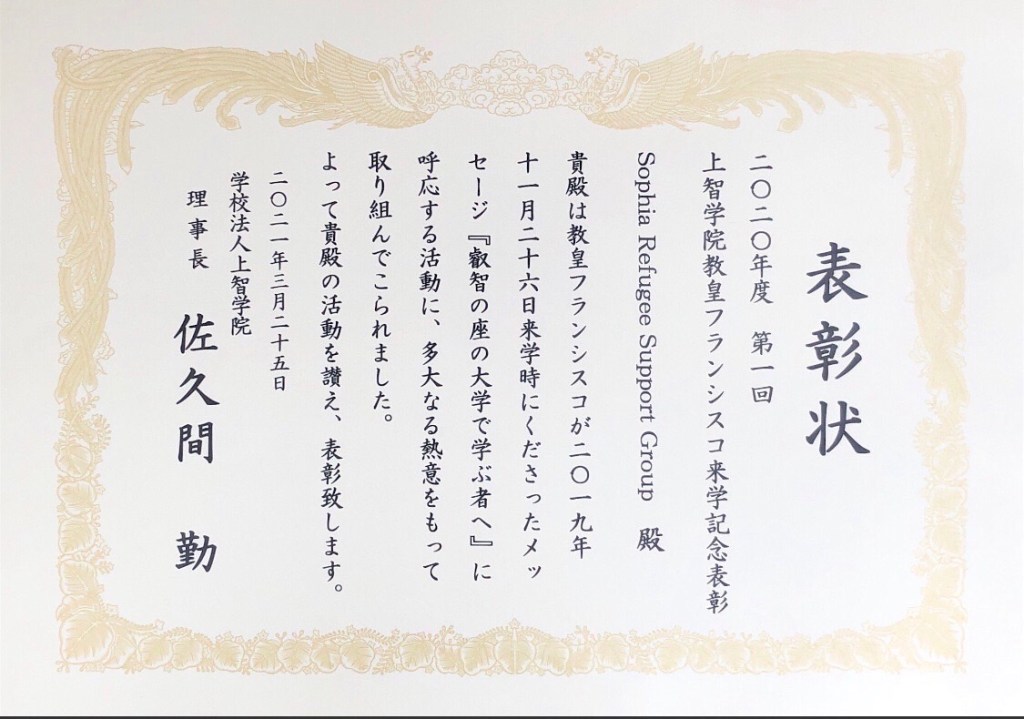 表彰状
二〇二〇年度 第一回
上智学院教皇フランシスコ来学記念表彰
Sophia Refugee Support Group 殿
貴殿は教皇フランシスコが二〇一九年
十一月二十六日来学時にくださったメッ
セージ『叡智の座の大学で学ぶ者へ』に
呼応する活動に、多大なる熱意をもって
取り組んでこられました。
よって貴殿の活動を讃え、表彰致します。
二〇二一年三月二十五日
学校法人上智学院
理事長 佐久間 勤